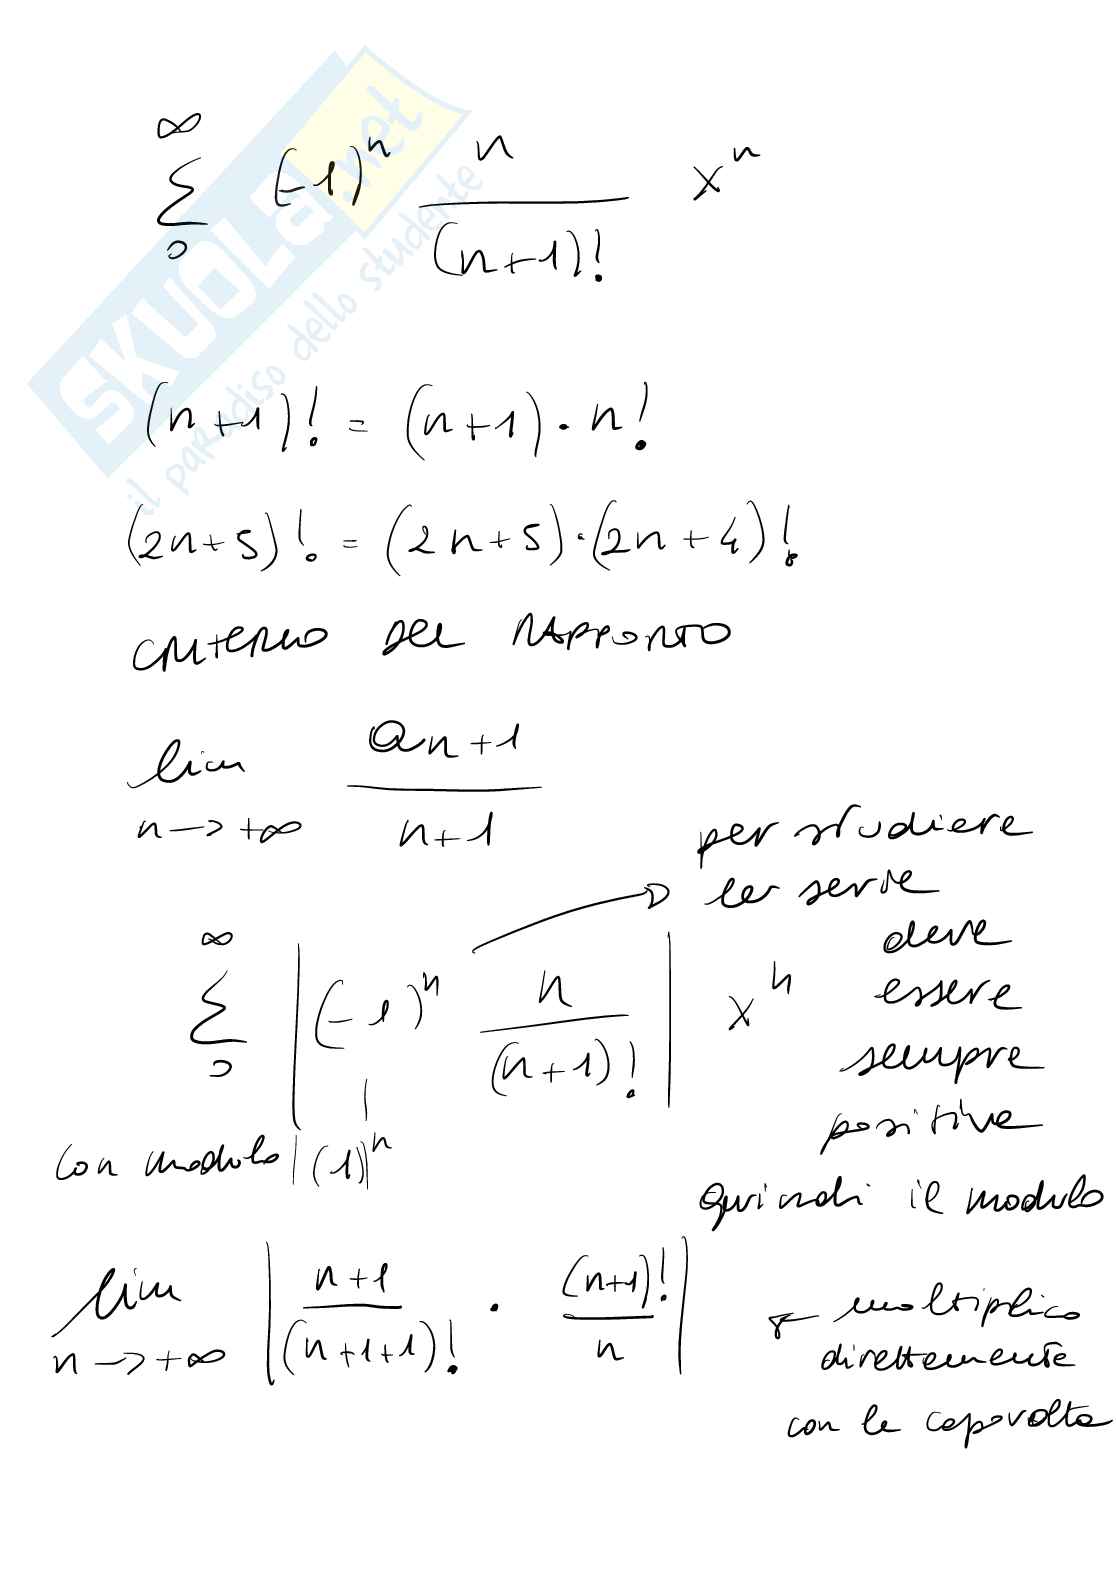 ∞
Σ (-1)^n n/(n+1)! x^n
0
(n+1)! = (n+1) · n!
(2n+5)! = (2n+5)·(2n+4)!
CRITERIO DEL RAPPORTO
lim n→+∞ an+1 / n+1
per studiare
la serie
deve
essere
sempre
positiva
quindi il modulo
∞
Σ |(-1)^n n/(n+1)!| x^n
0
con modulo |(1)|^n
lim n→+∞ | n+1/(n+1+1)! · (n+1)!/n |
← moltiplico
direttamente
con la capovolta
SKUOLA.net
il paradiso dello studente